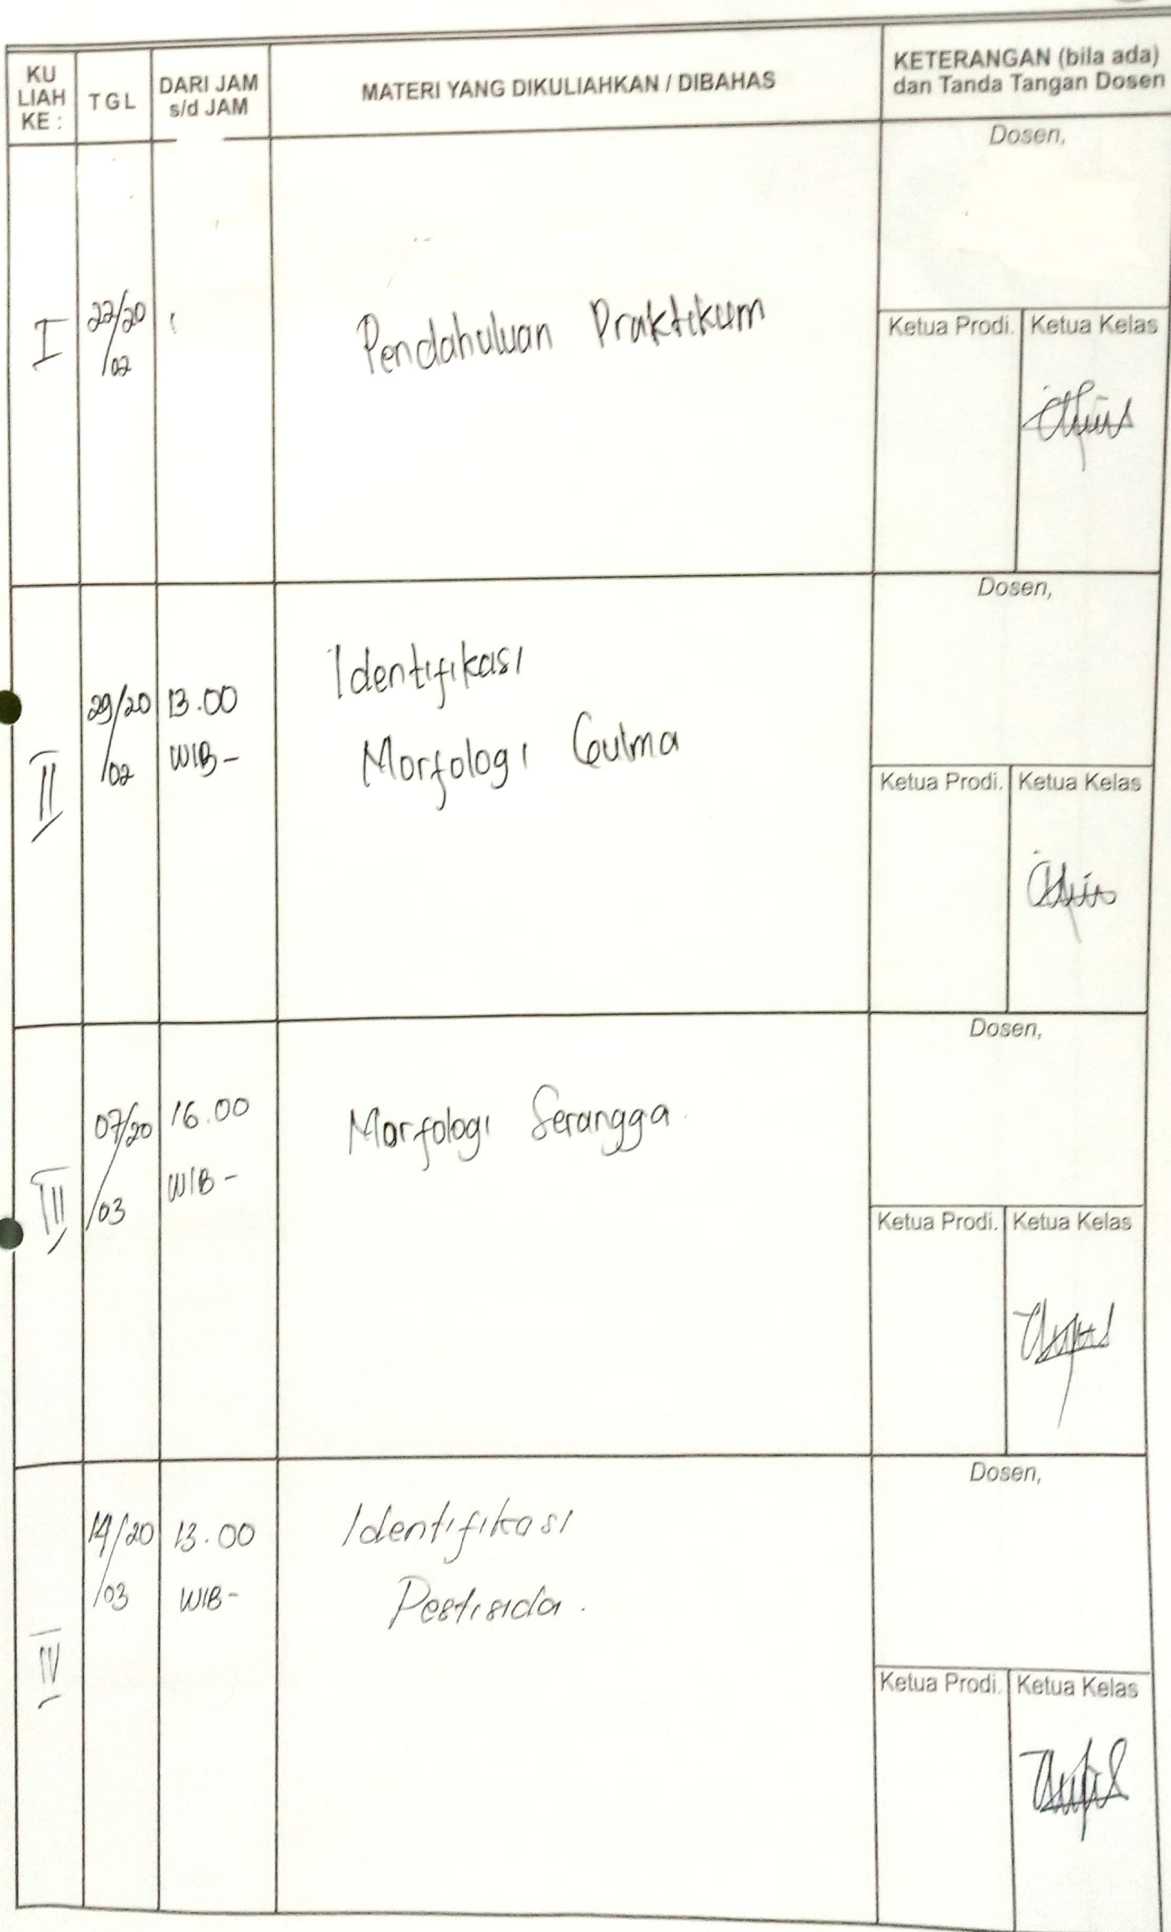 KU
LIAH
KE :
TGL
DARI JAM
s/d JAM
MATERI YANG DIKULIAHKAN / DIBAHAS
KETERANGAN (bila ada)
dan Tanda Tangan Dosen
Dosen,
I
22/20
/02
Pendahuluan Praktikum
Ketua Prodi. Ketua Kelas
Dosen,
II
29/20
/02
13.00
WIB -
Identifikasi
Morfologi Gulma
Ketua Prodi. Ketua Kelas
Dosen,
III
07/20
/03
16.00
WIB -
Morfologi Serangga.
Ketua Prodi. Ketua Kelas
Dosen,
IV
14/20
/03
13.00
WIB -
Identifikasi
Pestisida.
Ketua Prodi. Ketua Kelas